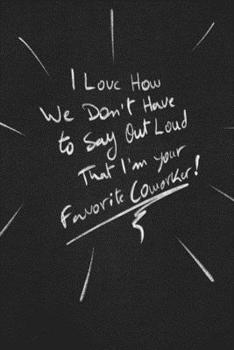 I Love How
We Don't Have
to Say Out Loud
That I'm your
Favorite Coworker!